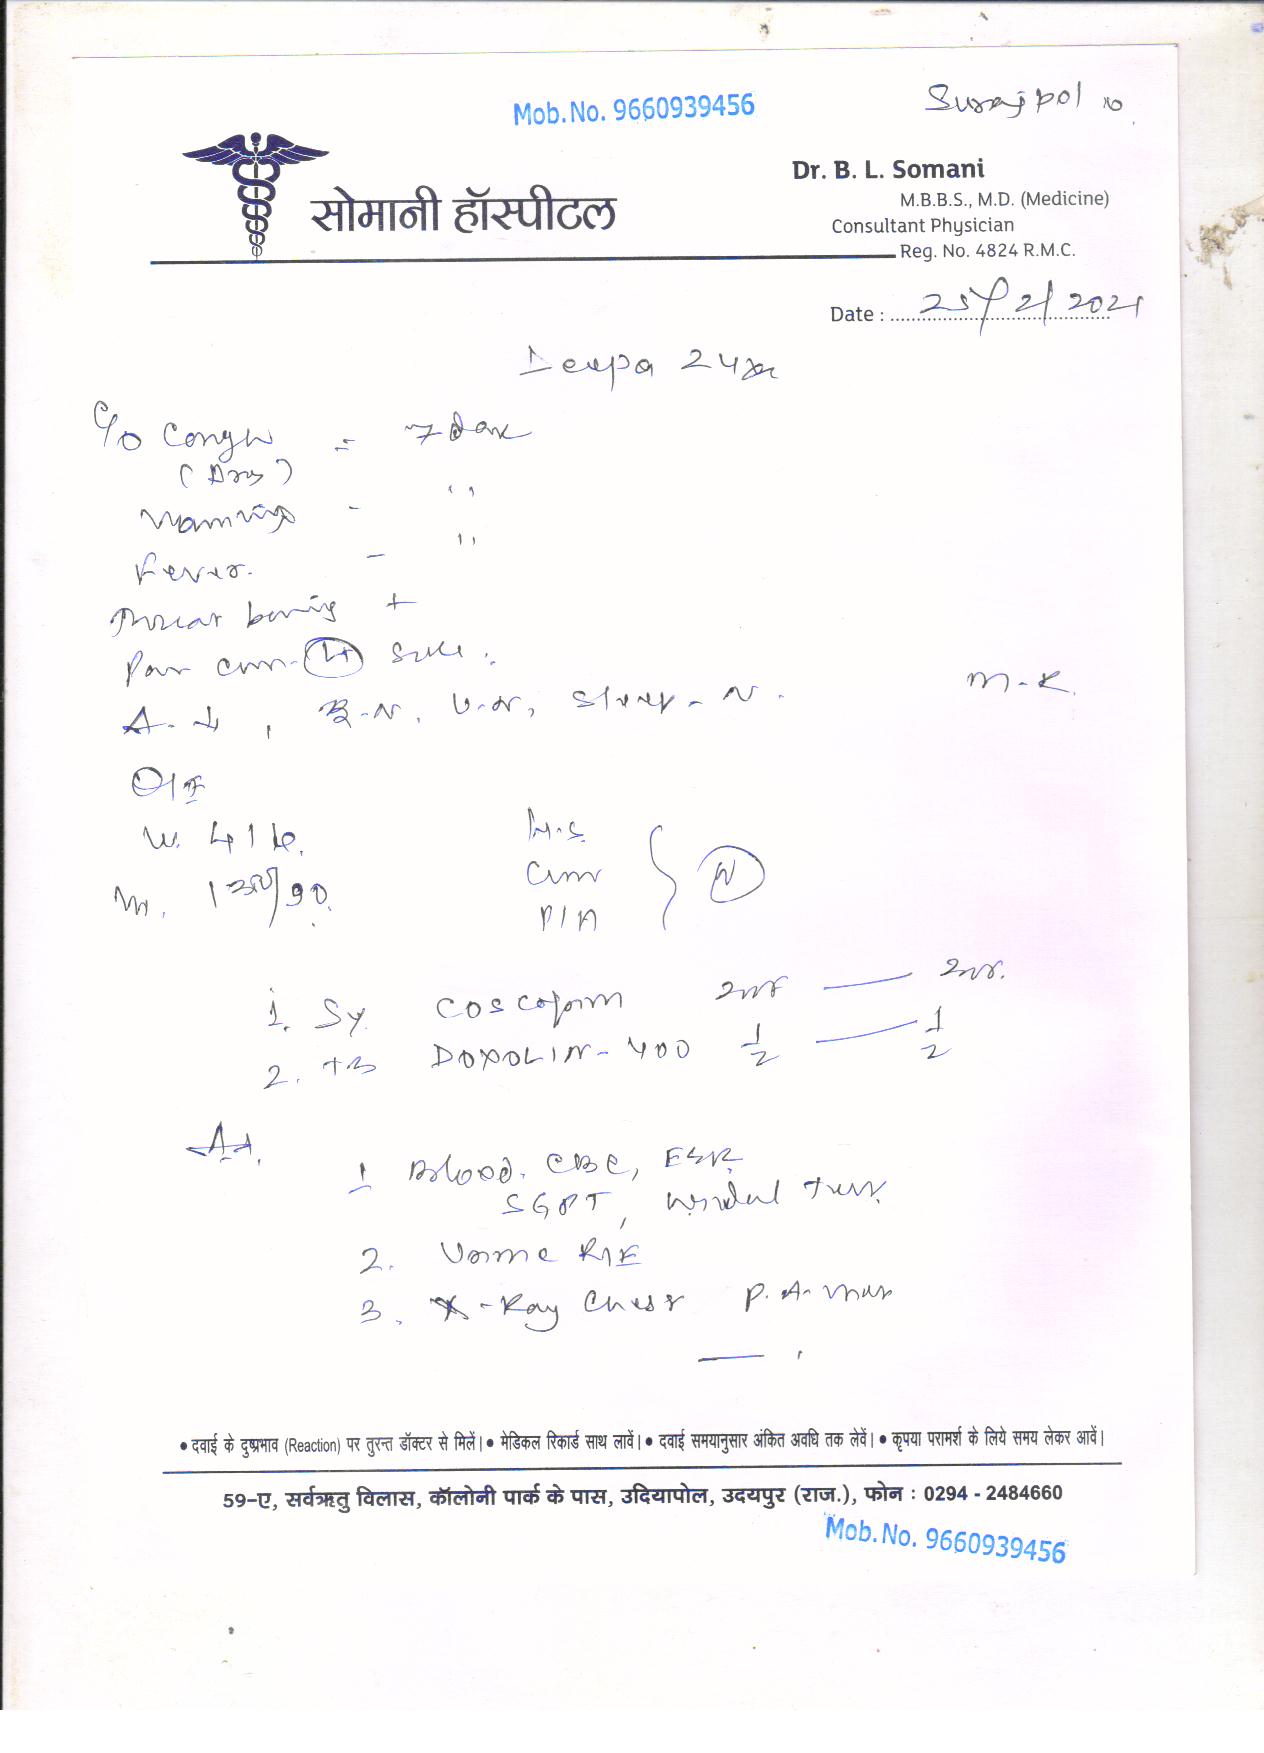 Mob.No. 9660939456
Surajpol
सोमानी हॉस्पीटल
Dr. B. L. Somani
M.B.B.S., M.D. (Medicine)
Consultant Physician
Reg. No. 4824 R.M.C.
Date : 25/2/2021
Deepa 24
C/O Cough = 7 days
(Dry)
Vomiting - ,,
Fever. - ,,
Throat +
A-↓, B-N, U-N, Sleep-N.
M-R.
O/E
W. 41 kg.
130/90.
H.S.
P/A
N
1. Sy. COSCOFORM
2. TB DOXOLIN-400 1/2 — 1/2
1 Blood. CBC, ESR
SGPT, Widal Test
2. Urine R/E
3. X-Ray Chest P.A. View
• दवाई के दुष्प्रभाव (Reaction) पर तुरन्त डॉक्टर से मिलें। • मेडिकल रिकार्ड साथ लावें। • दवाई समयानुसार अंकित अवधि तक लेवें। • कृपया परामर्श के लिये समय लेकर आवें।
59-ए, सर्वऋतु विलास, कॉलोनी पार्क के पास, उदियापोल, उदयपुर (राज.), फोन : 0294 - 2484660
Mob.No. 9660939456